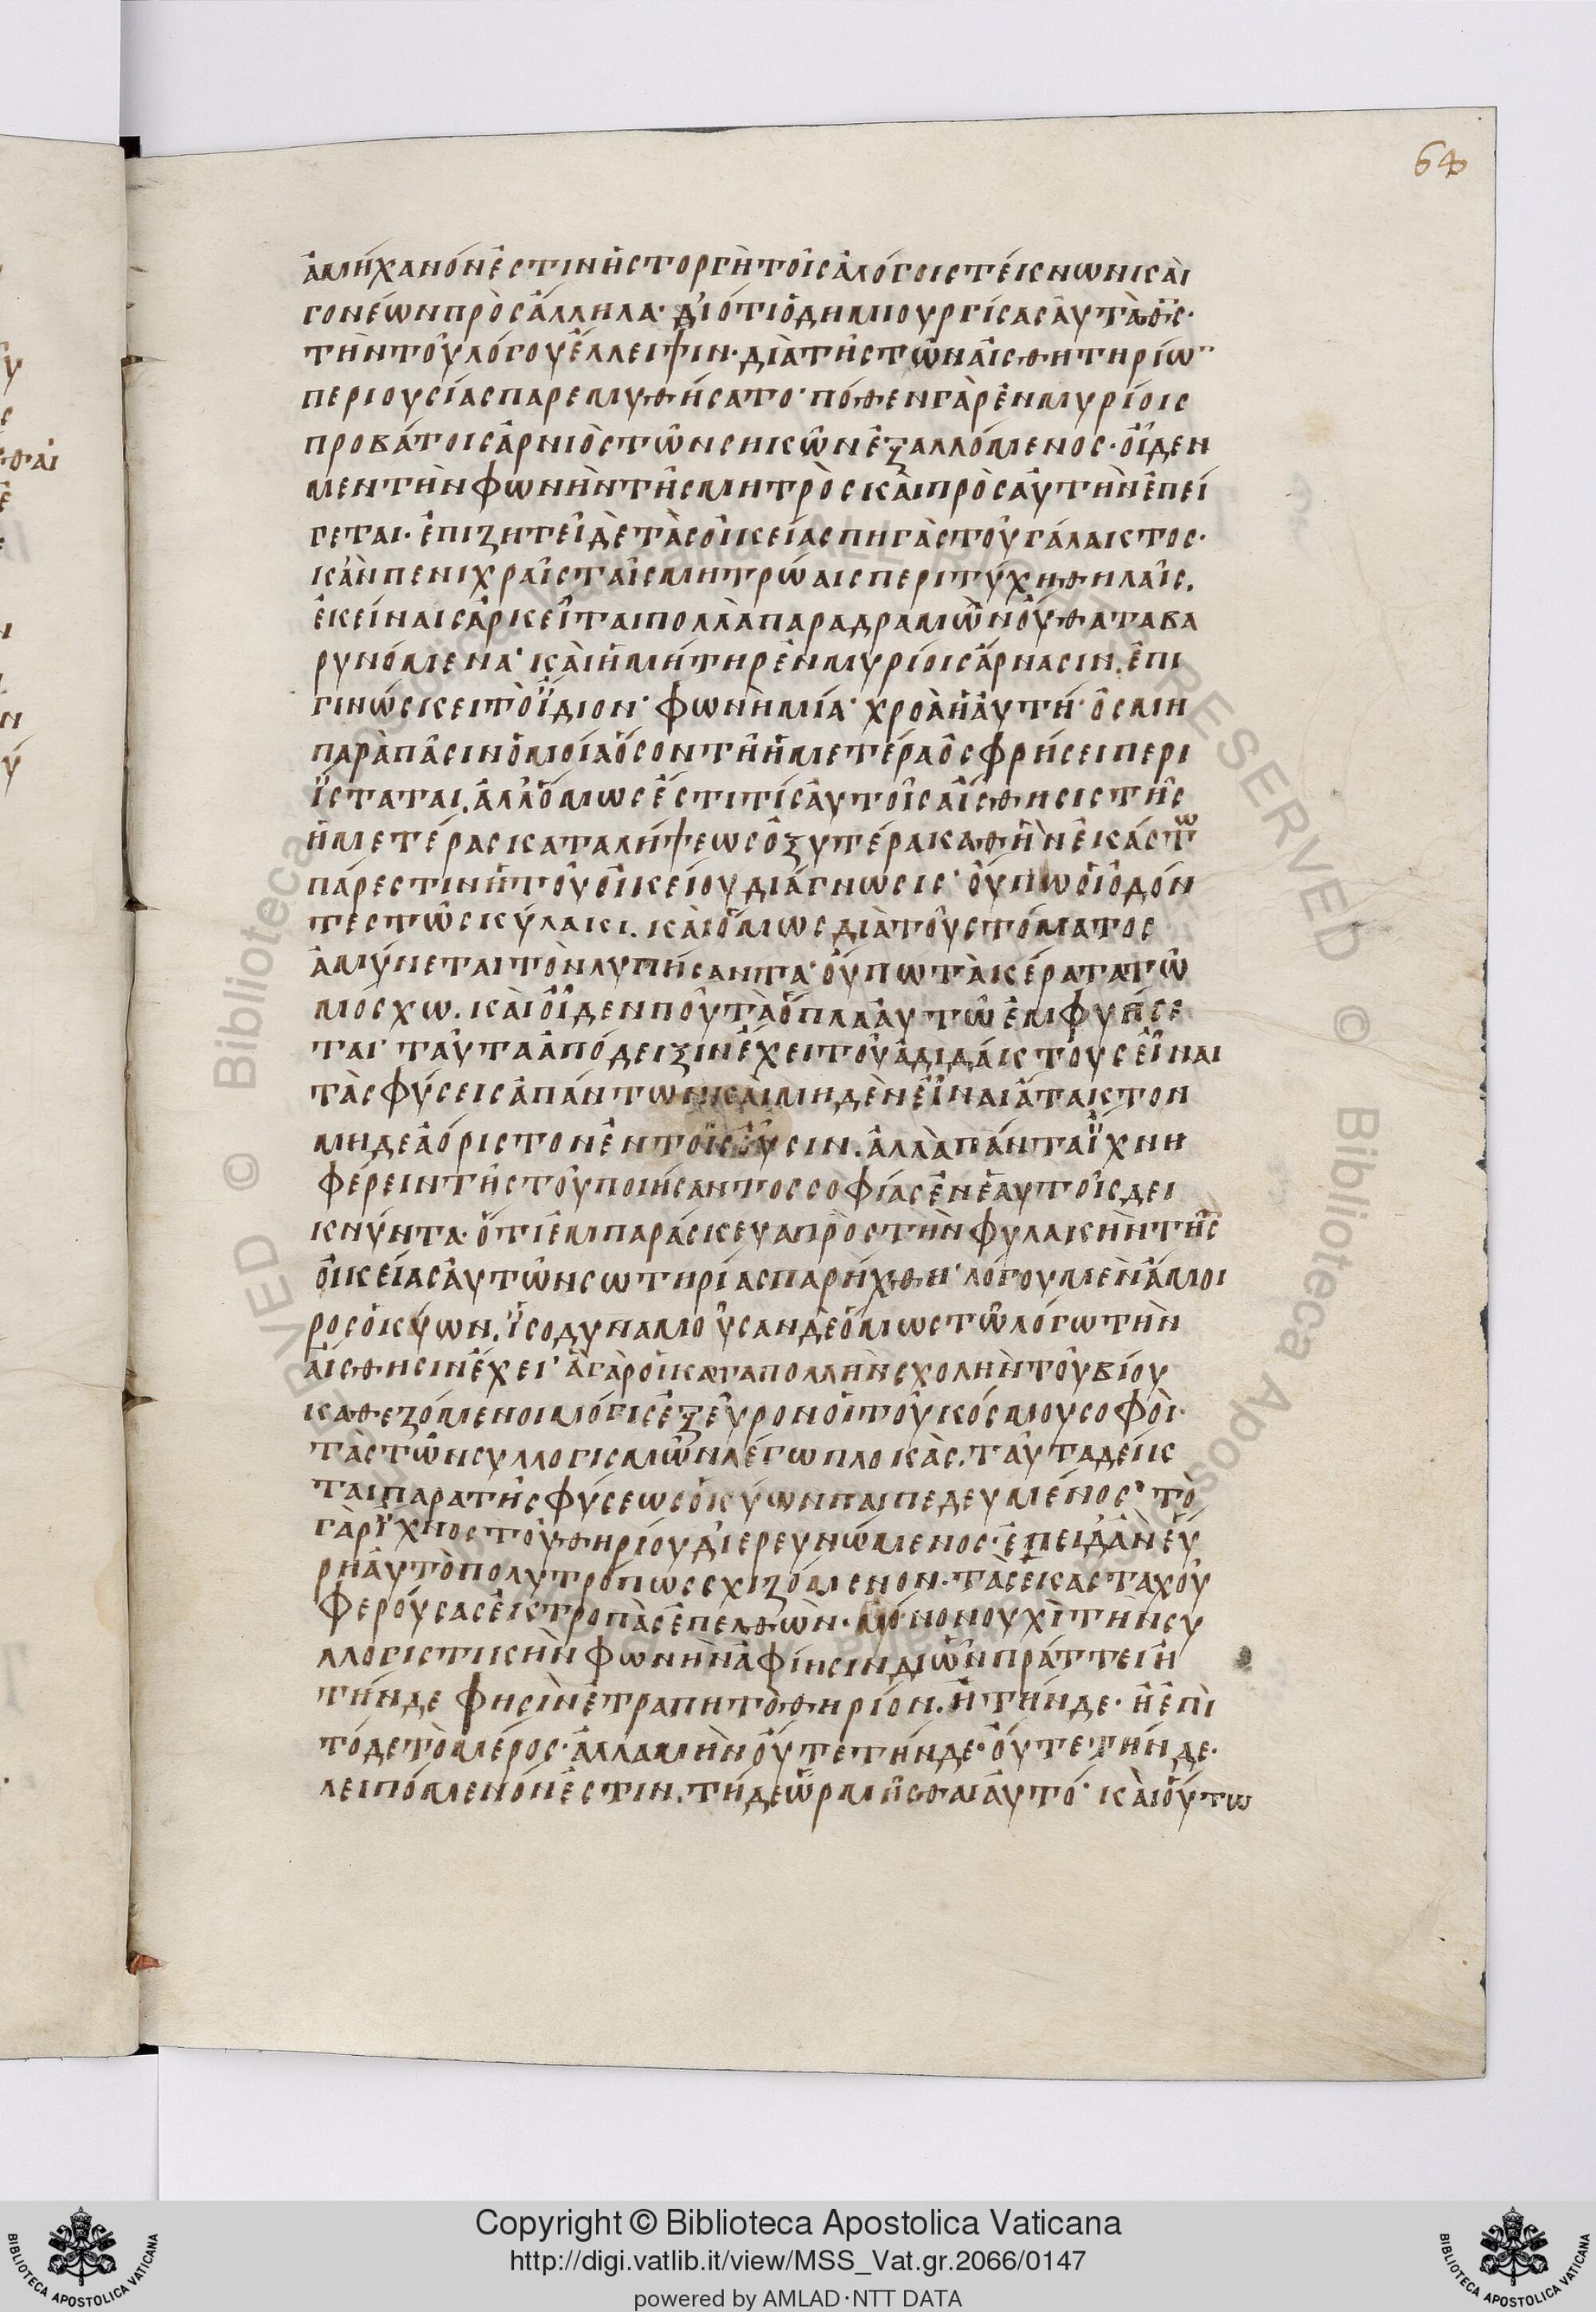 64
ἀμήχανόν ἐστιν ἡ στοργὴ τοῖς ἀλόγοις τέκνων καὶ
γονέων πρὸς ἄλληλα· διότι ὁ δημιουργίσας αὐτὰ θς·
τὴν τοῦ λόγου ἔλλειψιν· διὰ τῆς τῶν αἰσθητηρίω
περιουσίας παρεμυθήσατο· πόθεν γὰρ ἐν μυρίοις
προβάτοις ἀρνιὸς τῶν σηκῶν ἐξαλλόμενος· οἶδεν
μεν τὴν φωνὴν τῆς μητρὸς καὶ πρὸς αὐτὴν ἐπεί
γεται· ἐπιζητεῖ δὲ τὰς οἰκείας πηγὰς τοῦ γάλακτος·
κἂν πενιχραῖς ταῖς μητρώαις περιτύχη θηλαῖς.
ἐκείναις ἀρκεῖται πολλὰ παραδραμὼν οὔθατα βα
ρυνόμενα· καὶ ἡ μήτηρ ἐν μυρίοις ἄρνασιν. ἐπι
γινώσκει τὸ ἴδιον· φωνὴ μία· χροὰ ἡ αὐτή· ὀσμὴ
παρὰ πᾶσιν ὁμοία ὅσον τῆ ἡμετέρα ὀσφρήσει περι
ίσταται. ἀλλ' ὅμως ἔστι τίς αὐτοῖς αἴσθησις τῆς
ἡμετέρας καταλήψεως ὀξυτέρα καθ' ἣν ἑκάστω
πάρεστιν ἡ τοῦ οἰκείου διάγνωσις· οὔπω οἱ ὀδόν
τες τῶ σκύλακι. καὶ ὅμως διὰ τοῦ στόματος
ἀμύνεται τὸν λυπήσαντα· οὔπω τὰ κέρατα τῶ
μόσχω. καὶ οἶδεν ποῦ τὰ ὅπλα αὐτῶ ἐμφυήσε
ται· ταῦτα ἀπόδειξιν ἔχει τοῦ ἀδιδάκτους εἶναι
τὰς φύσεις ἁπάντων καὶ μηδὲν εἶναι ἄτακτον
μηδε ἀόριστον ἐν τοῖς οὖσιν. ἀλλὰ πάντα ἴχνη
φέρειν τῆς τοῦ ποιήσαντος σοφίας ἐν ἑαυτοῖς δει
κνύντα· ὅτι ἐμπαράσκευα πρὸς τὴν φυλακὴν τῆς
οἰκείας αὐτῶν σωτηρίας παρήχθη· λόγου μὲν ἄμοι
ρος ὁ κύων. ἰσοδυναμοῦσαν δὲ ὅμως τῶ λόγω τὴν
αἴσθησιν ἔχει· ἃ γὰρ οἱ κατα πολλὴν σχολὴν τοῦ βίου
καθεζόμενοι μόγις ἐξεῦρον οἱ τοῦ κόσμου σοφοὶ·
τὰς τῶν συλλογισμῶν λέγω πλοκὰς. ταῦτα δείκ
ται παρα τῆς φύσεως ὁ κύων παιπεδευμένος· τὸ
γὰρ ἴχνος τοῦ θηρίου διερευνώμενος· ἐπειδὰν εὕ
ρη αὐτὸ πολυτρόπως σχιζόμενον· τὰς ἑκασταχοῦ
φερούσας ἐκτροπὰς ἐπελθὼν· μόνον ουχὶ τὴν συ
λλογιστικὴν φωνὴν ἀφίησιν δι' ὧν πράττει ἢ
τήνδε φησὶν ἐτραπη τὸ θηρίον. ἢ τήνδε· ἢ ἐπὶ
τόδε τὸ μέρος· ἀλλα μὴν οὔτε τήνδε· οὔτε τήνδε·
λειπόμενόν ἐστιν. τήδε ὡρμῆσθαι αὐτό· καὶ οὕτω
© Biblioteca Apostolica Vaticana. ALL RIGHTS RESERVED
Copyright © Biblioteca Apostolica Vaticana
http://digi.vatlib.it/view/MSS_Vat.gr.2066/0147
powered by AMLAD·NTT DATA
BIBLIOTECA APOSTOLICA VATICANA
BIBLIOTECA APOSTOLICA VATICANA